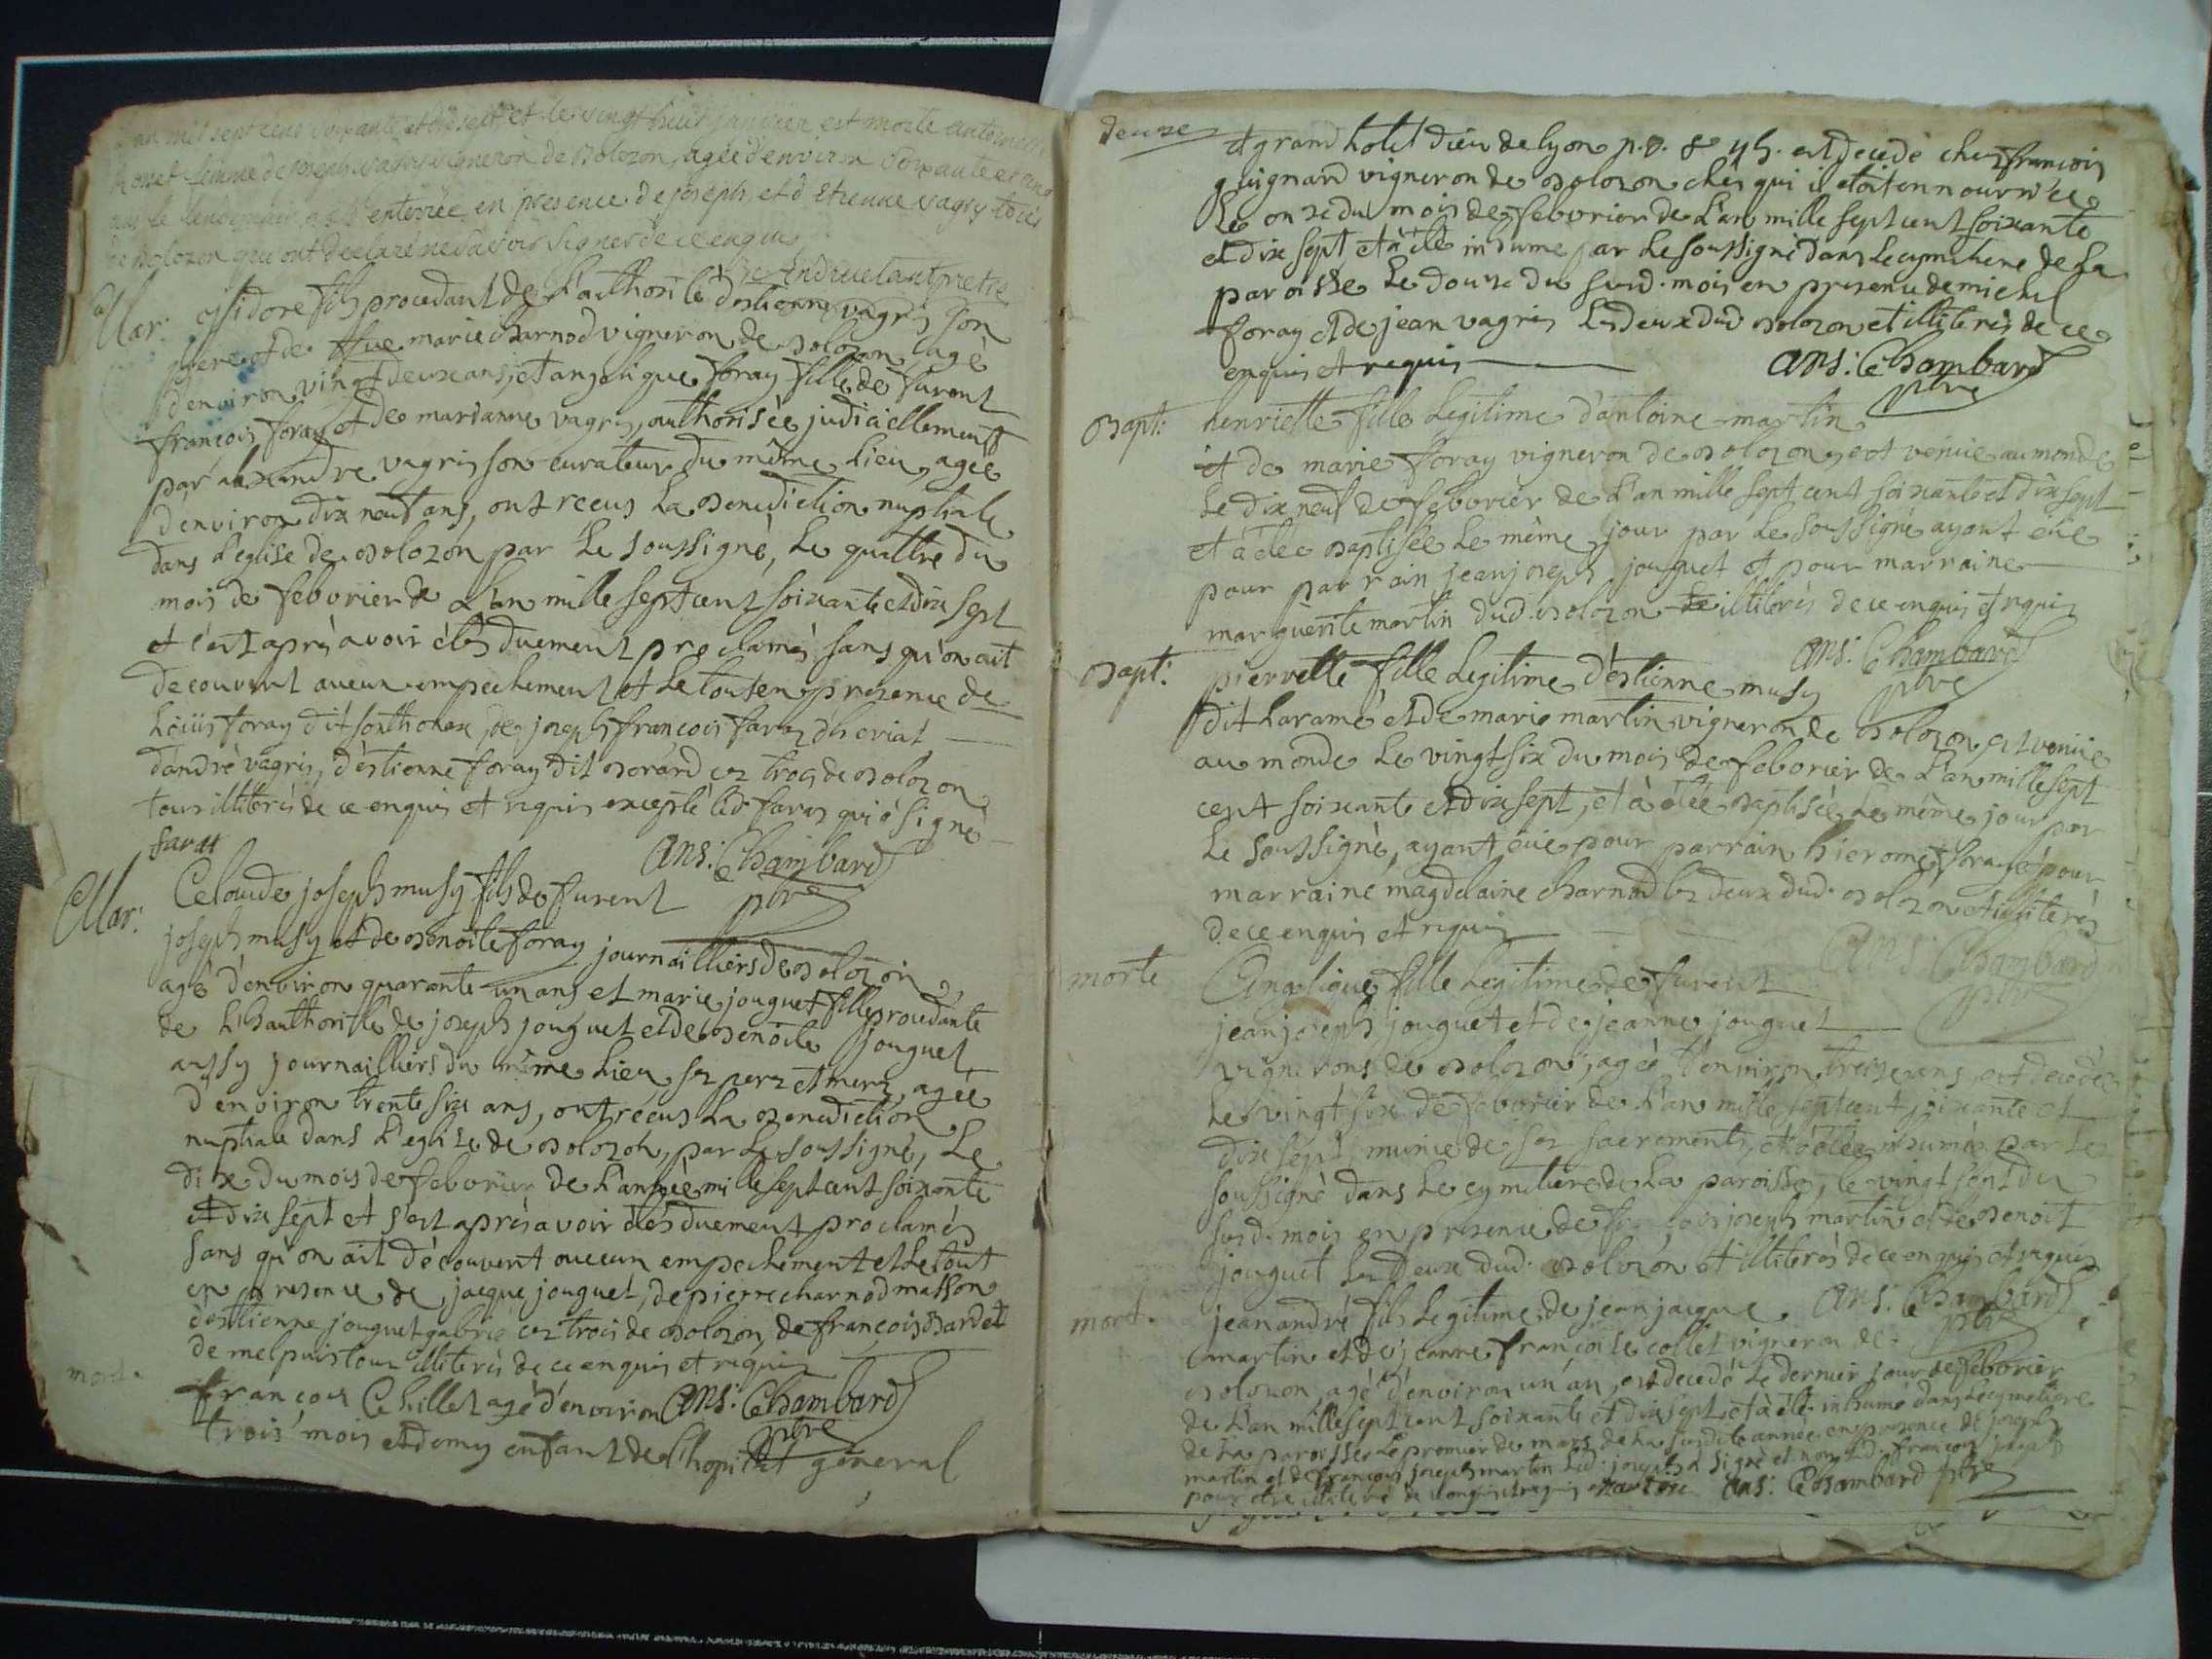 an mil sept cens soixante et dix sept et le vingt huit janvier est morte
femme de joseph vagris vigneron de Bolozon, agée d'environ soixante et
ans le lendemain a été enterrée en presence de joseph et d'etienne vagry tous
de Bolozon qui ont declaré ne savoir signer de ce enquis
pretre
Mar: isidore fils procedant de l'authorité d'estienne vagris son
pere et de fue marie charnod vigneron de Bolozon agé
d'environ vingt deux ans, et angelique foray fille de furent
françois foray et de marianne vagris, authorisée judiciellement
par alexandre vagris son curateur du même lieu, agée
d'environ dix neuf ans, ont recus La Benediction nuptiale
dans l'eglise de Bolozon par Le soussigné, Le quattre du
mois de febvrier de L'an mille sept cent soixante et dix sept
et c'est après avoir étés duement proclamés sans qu'on ait
decouvert aucun empechement et Le tout en presence de
Loüis foray dit sonthonax, de joseph françois faraz d'heriat
d'andrè vagris, d'estienne foray dit Borard ces trois de Bolozon
tous illiterés de ce enquis et requis excepté led. faraz qui a signé
faraz ans: Chambard
ptre
Mar: Claude joseph musy fils de furent
joseph musy et de Benoite foray journailliers de Bolozon
agé d'environ quarante un ans et marie jouguet fille procedante
de L'hauthorité de joseph jouguet et de Benoite jouguet
aussy journailliers du même Lieu ses pere et mere, agée
d'environ trente six ans, ont recus La Benediction
nuptiale dans L'eglise de Bolozon, par Le soussigné, Le
dix du mois de febvrier de L'année mille sept cent soixante
et dix sept et s'est après avoir étés duement proclamés
sans qu'on ait découvert aucun empechement et Le tout
en presence de jacque jouguet, de pierre charnod masson
d'estienne jouguet gabrie ces trois de Bolozon, de françois Bardet
de melpuis tous illiterés de ce enquis et requis
mort. françois Chillet agé d'environ ans: Chambard
ptre
trois mois et demy enfant de L'hopital général
deuxe et grand hotel dieu de lyon n.o. & yh. est decedé chez françois
guignard vigneron de Bolozon chez qui il etoit en nourrice
Le onze du mois de febvrier de L'an mille sept cent soixante
et dix sept et à été inhumé par Le soussigné dans Le cymetiere de La
paroisse Le douze du susd. mois en presence de michel
foray et de jean vagris Les deux dud. Bolozon et illiterés de ce
enquis et requis ans: Chambard
ptre
Bapt: henriette fille Legitime d'antoine martin
et de marie foray vigneron de Bolozon, est venüe au monde
Le dix neuf de febvrier de L'an mille sept cent soixante et dix sept
et à étée Baptisée Le même jour par Le soussigné ayant eüe
pour parrain jean joseph jouguet et pour marraine
marguerite martin dud. Bolozon illiterés de ce enquis et requis
ans: Chambard
ptre
Bapt: pierrette fille Legitime d'estienne musy
dit Laramé et de marie martin vigneron de Bolozon, est venüe
au monde Le vingt six du mois de febvrier de L'an mille sept
cent soixante et dix sept, et à étée Baptisée Le même jour par
Le soussigné, ayant eüe pour parrain hierome foray et pour
marraine magdelaine charnod Les deux dud. Bolozon et illiterés
de ce enquis et requis
ans: Chambard
ptre
morte Angelique fille Legitime de furent
jean joseph jouguet et de jeanne jouguet
vignerons de Bolozon, agée d'environ treize ans, est decedée
Le vingt six de febvrier de L'an mille sept cent soixante et
dix sept, munie de ses sacrements, et à étée inhumée par Le
soussigné dans Le cymetiere de La paroisse, le vingt sept du
susd. mois en presence de françois joseph martin et de Benoit
jouguet Les deux dud. Bolozon et illiterés de ce enquis et requis
ans: Chambard
ptre
mort. jean andré fils Legitime de jean jacque
martin et de jeanne françoise collet vigneron de
Bolozon, agé d'environ un an, est decedé Le dernier jour de febvrier
de L'an mille sept cent soixante et dix sept et à été inhumé dans Le cymetiere
de La paroisse Le premier de mars de La susdite année en presence de joseph
martin et de françois joseph martin Led. joseph a signé et non Led. françois joseph
pour etre illiteré de ce enquis et requis martin ans: Chambard ptre